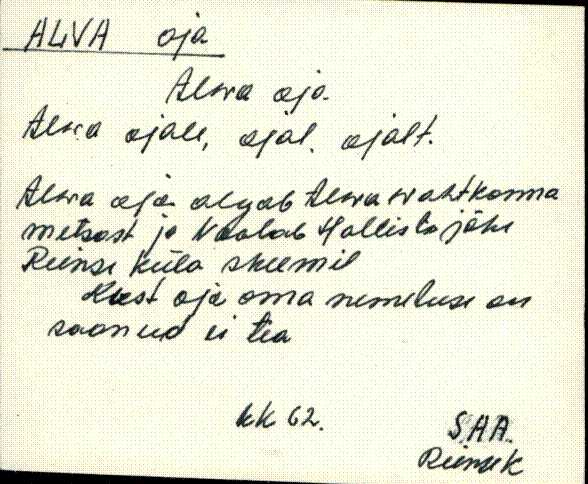 ALVA oja
Alva oja.
Alva ojale, ojal, ojalt.
Alva oja algab Alva vahtkonna
metsast ja voolab Hallisto jõkke
Riinse küla skeemil
Kust oja oma nimetuse on
saanud ei tea
KK 62.
SAA.